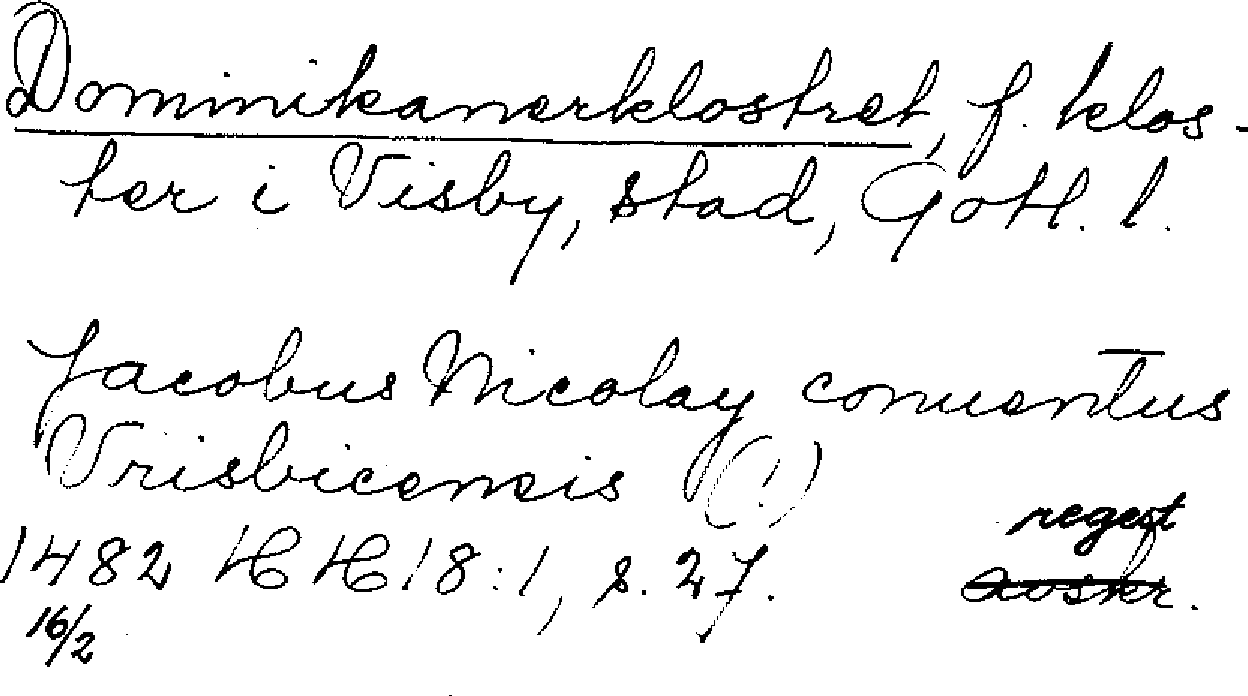 Dominikanerklostret, f. klos-
ter i Visby, stad, Gotl. l.
Jacobus Nicolay conuentus
Vrisbicensis (!)
regest
1482 HH 18:1, s. 27. avskr.
16/2